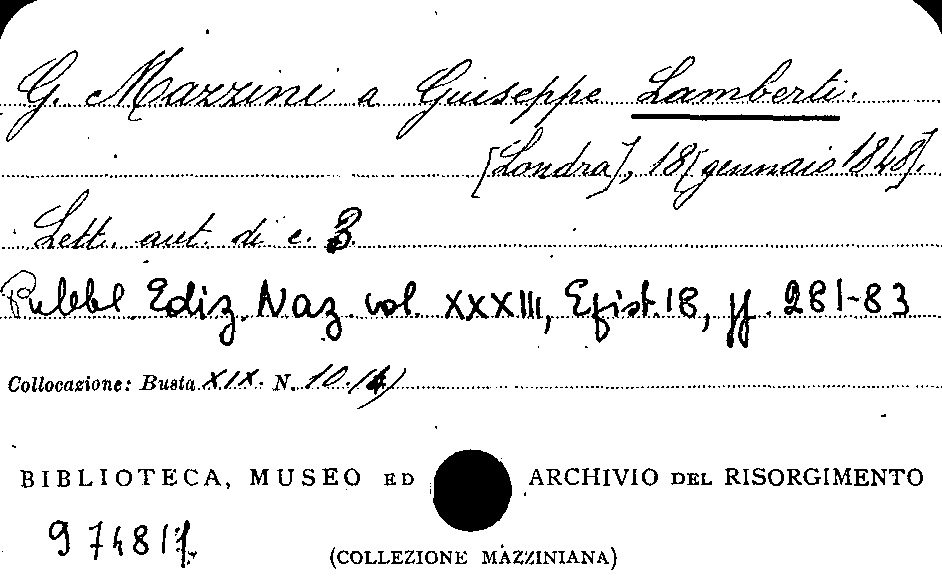 G. Mazzini a Giuseppe Lamberti.
[Londra], 18 [gennaio 1848].
Lett. aut. di c. 3.
Pubbl. Ediz. Naz. vol. XXXIII, Epist. 18, pp. 281-83
Collocazione: Busta XIX. N. 10 (4)
BIBLIOTECA, MUSEO ED ARCHIVIO DEL RISORGIMENTO
(COLLEZIONE MAZZINIANA)